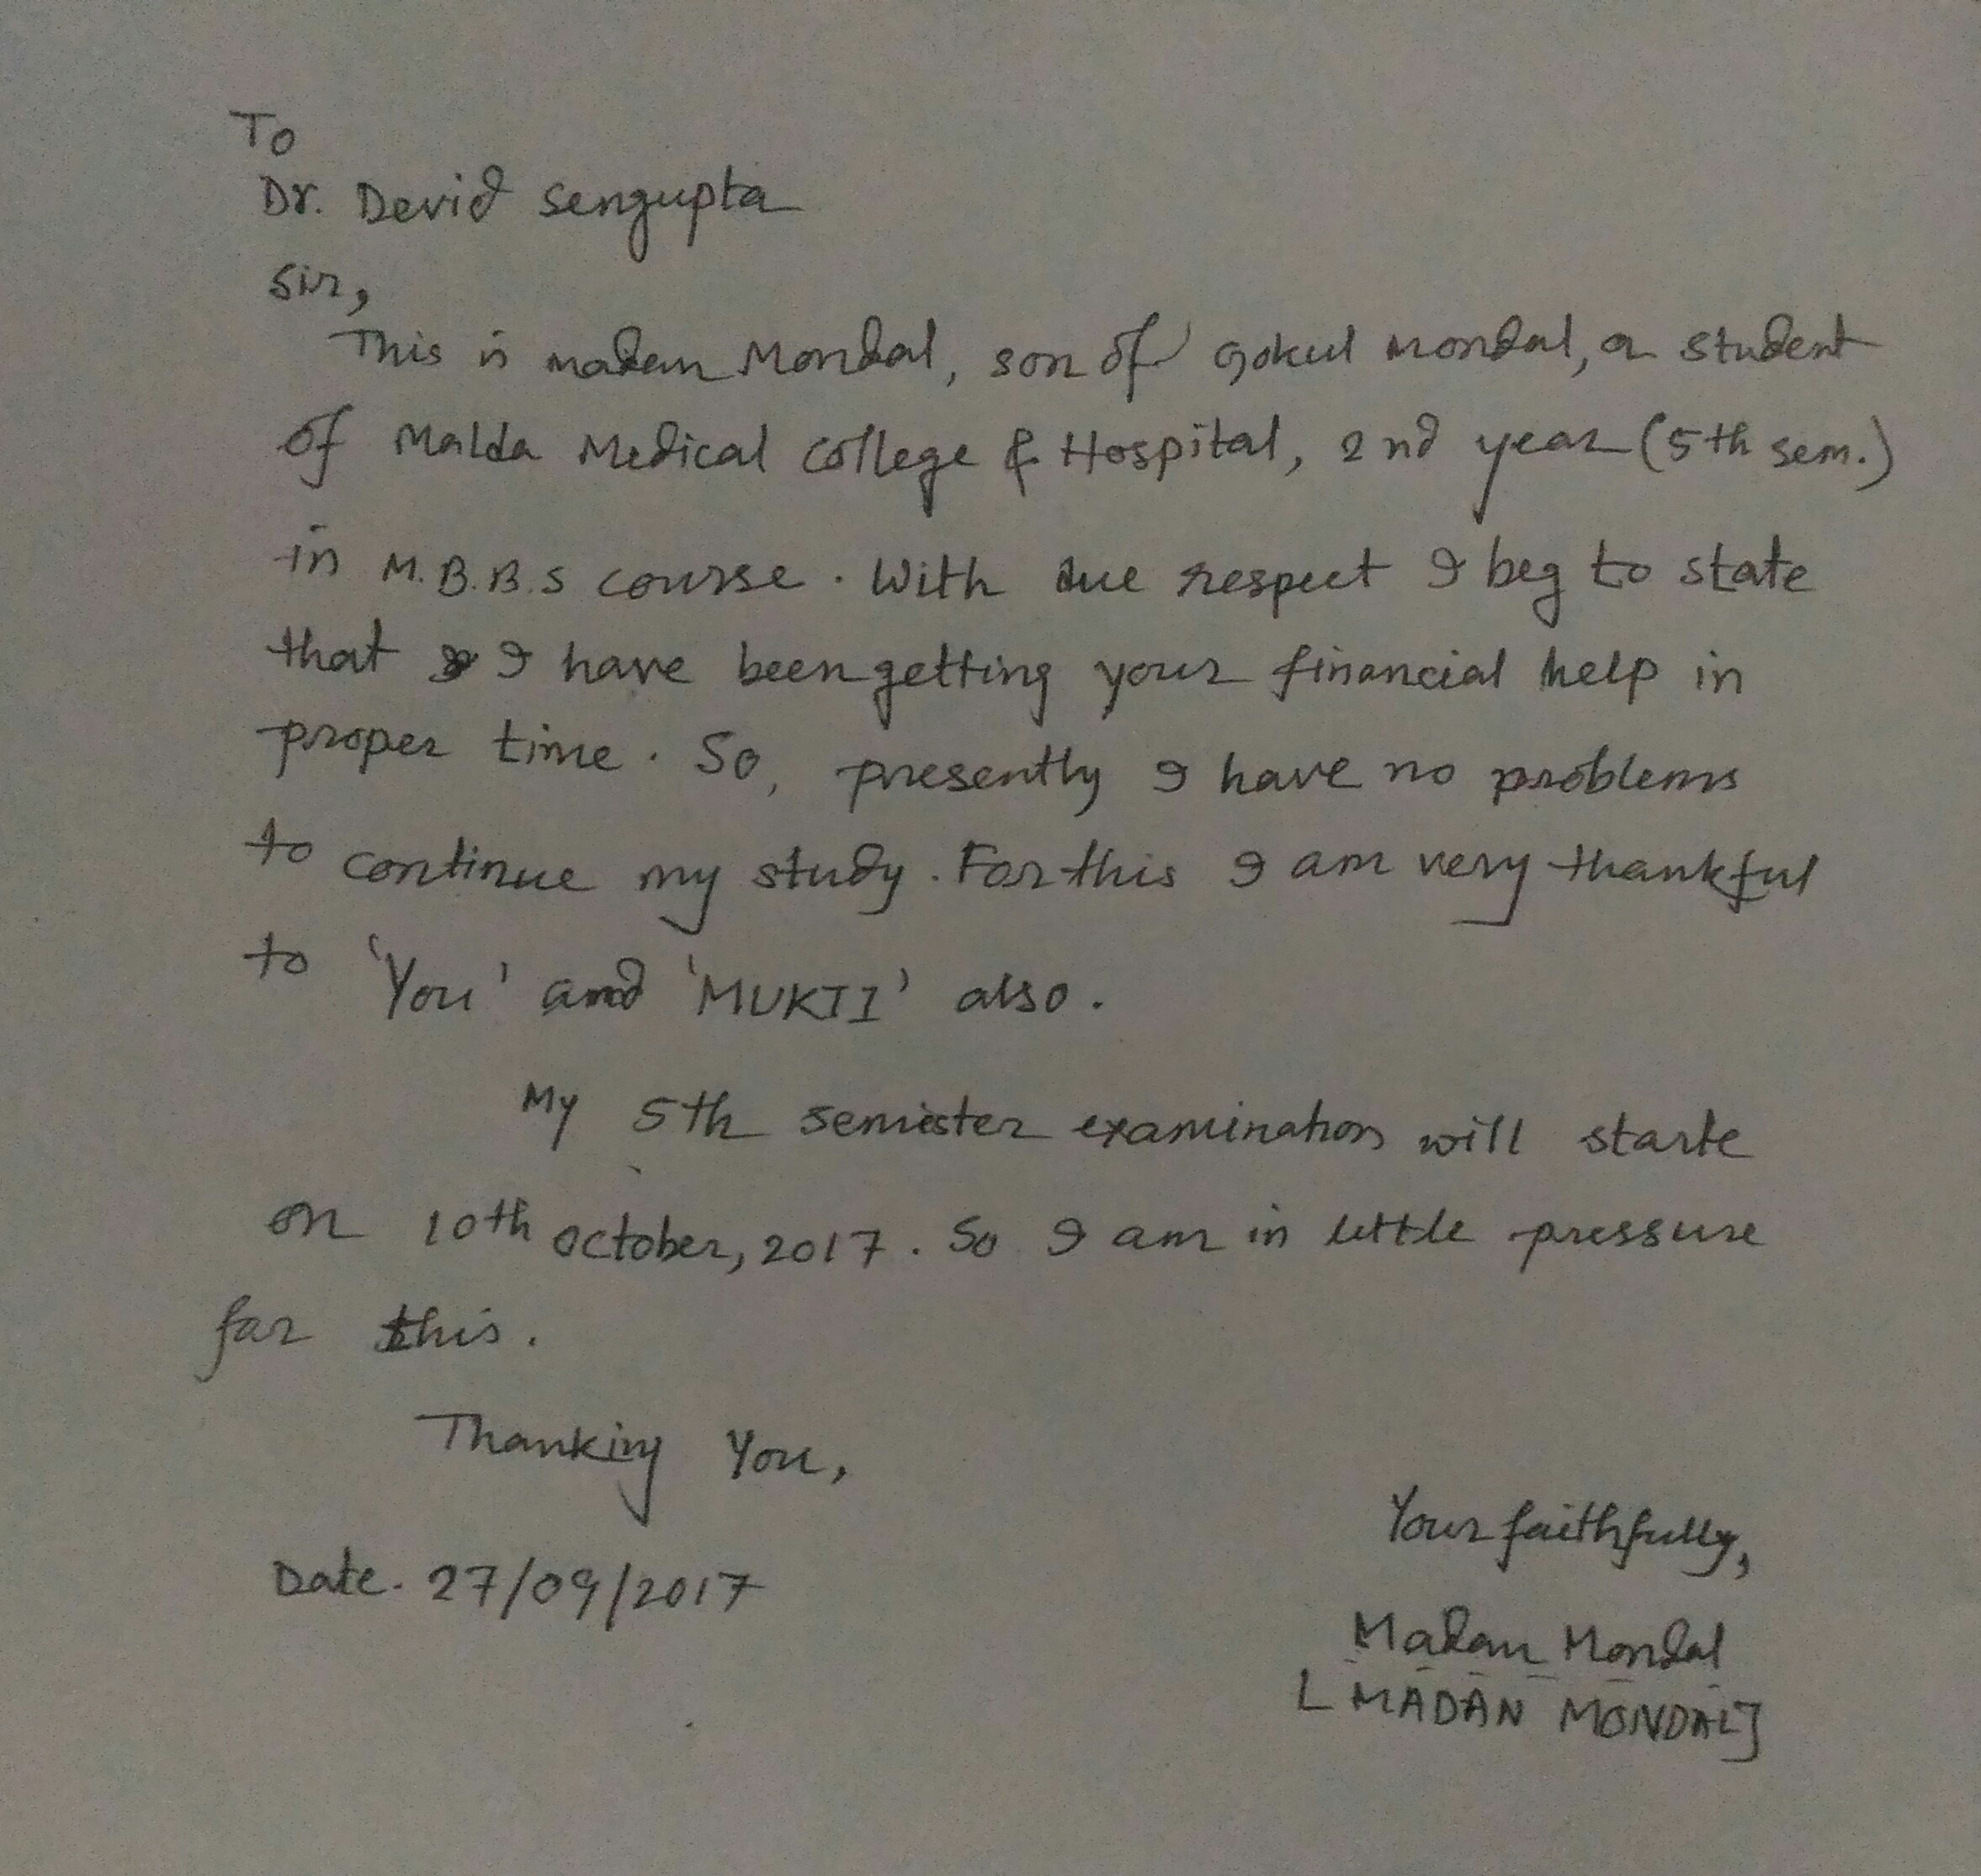 To
Dr. Devid Sengupta
Sir,
This is madan Mondal, son of Gokul Mondal, a student
of Malda Medical College & Hospital, 2nd year (5th sem.)
in M.B.B.S course. With due respect I beg to state
that I have been getting your financial help in
proper time. So, presently I have no problems
to continue my study. For this I am very thankful
to 'You' and 'MUKTI' also.
My 5th semister examination will starte
on 10th October, 2017. So I am in little pressure
for this.
Thanking You,
Your faithfully,
Date. 27/09/2017
Madan Mondal
[MADAN MONDAL]